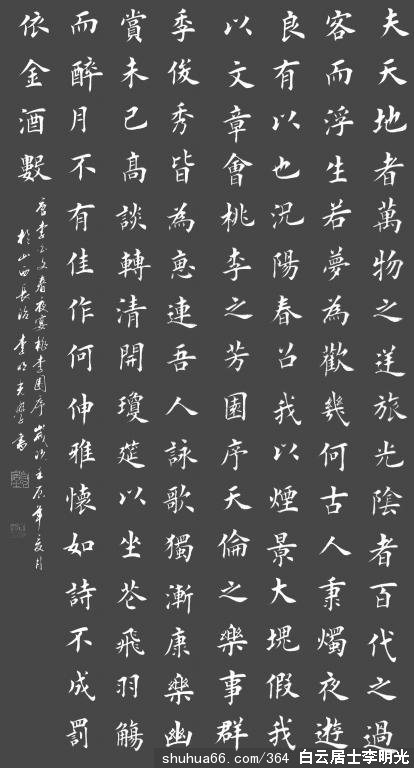 夫天地者萬物之逆旅光陰者百代之過
客而浮生若夢為歡幾何古人秉燭夜遊
良有以也況陽春召我以煙景大塊假我
以文章會桃李之芳園序天倫之樂事群
季俊秀皆為惠連吾人詠歌獨漸康樂幽
賞未已高談轉清開瓊筵以坐花飛羽觴
而醉月不有佳作何伸雅懷如詩不成罰
依金酒數
唐李白文春夜宴桃李園序歲次壬辰年亥月
於山西長治李明光書
shuhua66.com/364 白云居士李明光